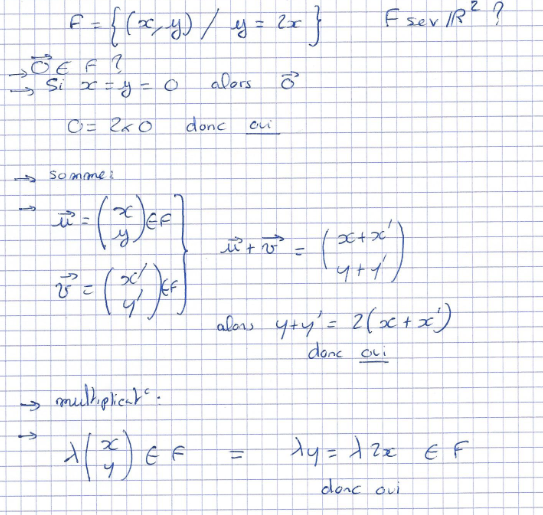 F = {(x, y) / y = 2x}    F sev ℝ² ?
→ 0⃗ ∈ F ?
→ Si x = y = 0 alors 0⃗
0 = 2×0 donc oui
→ somme:
→ u⃗ = (x y) ∈ F
v⃗ = (x' y') ∈ F } u⃗ + v⃗ = (x+x' y+y')
alors y+y' = 2(x+x')
donc oui
→ multiplicat°.
→ λ(x y) ∈ F = λy = λ2x ∈ F
donc oui